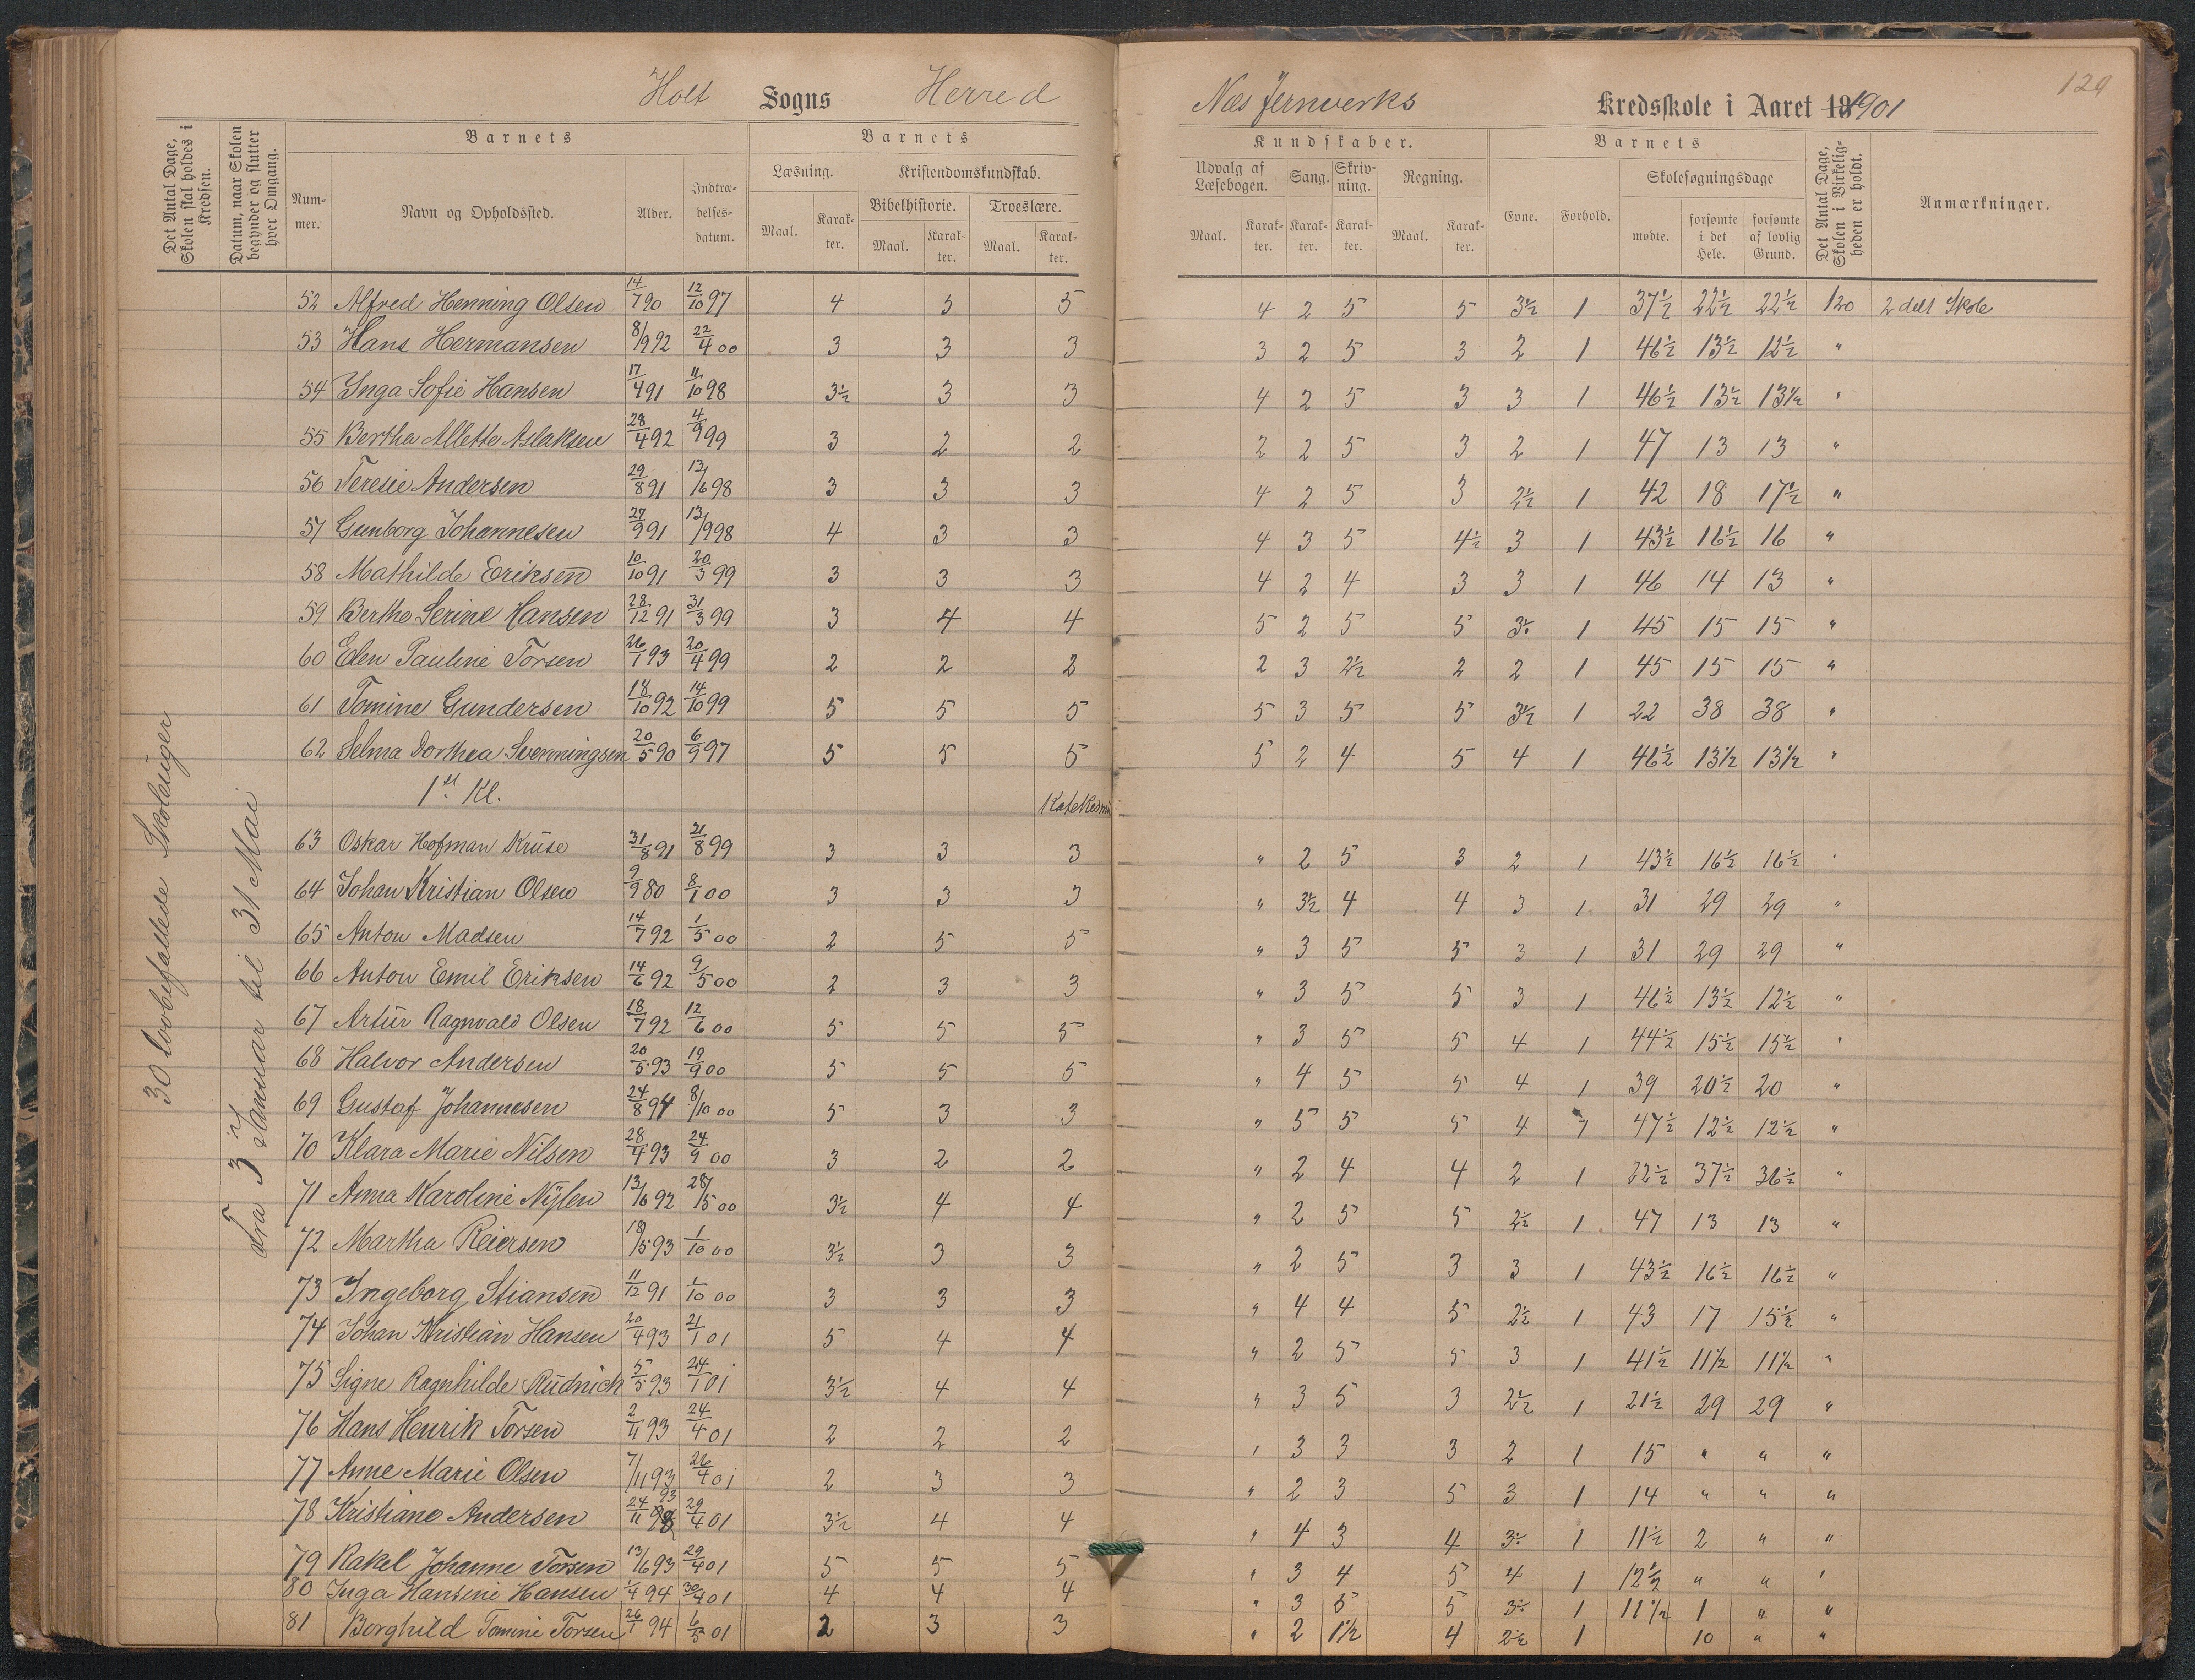 Holt Sogns Herred
Næs Jernverks Kredsskole i Aaret 1901
129
Det Antal Dage, Skolen skal holdes i Kredsen.
Datum, naar Skolen begynder og slutter hver Omgang.
Barnets
Nummer.
Navn og Opholdssted.
Alder.
Indtrædelsesdatum.
Barnets
Læsning.
Kristendomskundskab.
Bibelhistorie.
Troeslære.
Maal. Karakter. Maal. Karakter. Maal. Karakter.
Kundskaber.
Udvalg af Læsebogen. Sang. Skrivning. Regning.
Maal. Karakter. Karakter. Karakter. Maal. Karakter.
Barnets
Evne. Forhold.
Skolesøgningsdage
mødte. forsømte i det Hele. forsømte af lovlig Grund.
Det Antal Dage, Skolen i Virkeligheden er holdt.
Anmærkninger.
30 lovbefallede Skoleuger
Fra 3 Januar til 31 Mai
52 Alfred Henning Olsen 14/7 90 12/10 97 4 5 5 4 2 5 5 3½ 1 37½ 22½ 22½ 120 2 delt Skole
53 Hans Hermansen 8/9 92 22/4 00 3 3 3 3 2 5 3 2 1 46½ 13½ 12½ "
54 Inga Sofie Hansen 17/4 91 11/10 98 3½ 3 3 4 2 5 3 3 1 46½ 13½ 13½ "
55 Bertha Allette Aslaksen 28/4 92 4/9 99 3 2 2 2 2 5 3 2 1 47 13 13 "
56 Teresie Andersen 29/8 91 13/6 98 3 3 3 4 2 5 3 2½ 1 42 18 17½ "
57 Gunborg Johannesen 27/9 91 13/9 98 4 3 3 4 3 5 4½ 3 1 43½ 16½ 16 "
58 Mathilde Eriksen 10/10 91 20/3 99 3 3 3 4 2 4 3 3 1 46 14 13 "
59 Berthe Serine Hansen 28/12 91 31/3 99 3 4 4 5 2 5 5 3÷ 1 45 15 15 "
60 Elen Pauline Torsen 26/1 93 20/4 99 2 2 2 2 3 2½ 2 2 1 45 15 15 "
61 Tomine Gundersen 18/10 92 14/10 99 5 5 5 5 3 5 5 3½ 1 22 38 38 "
62 Selma Dorthea Svenningsen 20/5 90 6/9 97 5 5 5 5 2 4 5 4 1 46½ 13½ 13½ "
1st Kl.
63 Oskar Hofman Kruse 31/8 91 21/8 99 3 3 3 " 2 5 3 2 1 43½ 16½ 16½ "
64 Johan Kristian Olsen 9/9 80 8/1 00 3 3 3 " 3½ 4 4 3 1 31 29 29 "
65 Anton Madsen 14/7 92 1/5 00 2 5 5 " 3 5 5 3 1 31 29 29 "
66 Anton Emil Eriksen 14/6 92 9/5 00 2 3 3 " 3 5 5 3 1 46½ 13½ 12½ "
67 Artur Ragnvald Olsen 18/7 92 12/6 00 5 5 5 " 3 5 5 4 1 44½ 15½ 15½ "
68 Halvor Andersen 20/5 93 19/9 00 5 5 5 " 4 5 5 4 1 39 20½ 20 "
69 Gustaf Johannesen 24/8 94 8/10 00 5 3 3 " 5 5 5 4 1 47½ 12½ 12½ "
70 Klara Marie Nilsen 28/4 93 24/9 00 3 2 2 " 2 4 4 2 1 22½ 37½ 36½ "
71 Anna Karoline Nylen 13/6 92 28/5 00 3½ 4 4 " 2 5 5 2½ 1 47 13 13 "
72 Martha Reiersen 18/5 93 1/10 00 3½ 3 3 " 2 5 3 3 1 43½ 16½ 16½ "
73 Ingeborg Stiansen 11/12 91 1/10 00 3 3 3 " 4 4 5 2½ 1 43 17 15½ "
74 Johan Kristian Hansen 20/4 93 21/1 01 5 4 4 " 2 5 5 3 1 41½ 11½ 11½ "
75 Signe Ragnhilde Rudnich 5/5 93 24/1 01 3½ 4 4 " 3 5 3 2½ 1 21½ 29 29 "
76 Hans Henrik Torsen 2/11 93 24/4 01 2 2 2 " 3 3 3 2 1 15 " " "
77 Anne Marie Olsen 7/11 93 26/4 01 2 3 3 " 2 3 5 3 1 14 " " "
78 Kristiane Andersen 24/11 93 29/4 01 3½ 4 4 " 4 3 4 3÷ 1 11½ 2 " "
79 Rakel Johanne Torsen 13/6 93 29/4 01 5 5 5 " 3 4 5 4 1 12½ " " "
80 Inga Hansine Hansen 1/4 94 30/4 01 4 4 4 " 3 5 5 3÷ 1 11½ 1 " "
81 Borghild Tomine Torsen 26/1 94 6/5 01 2 3 3 " 2 1½ 4 2½ 1 10 " "